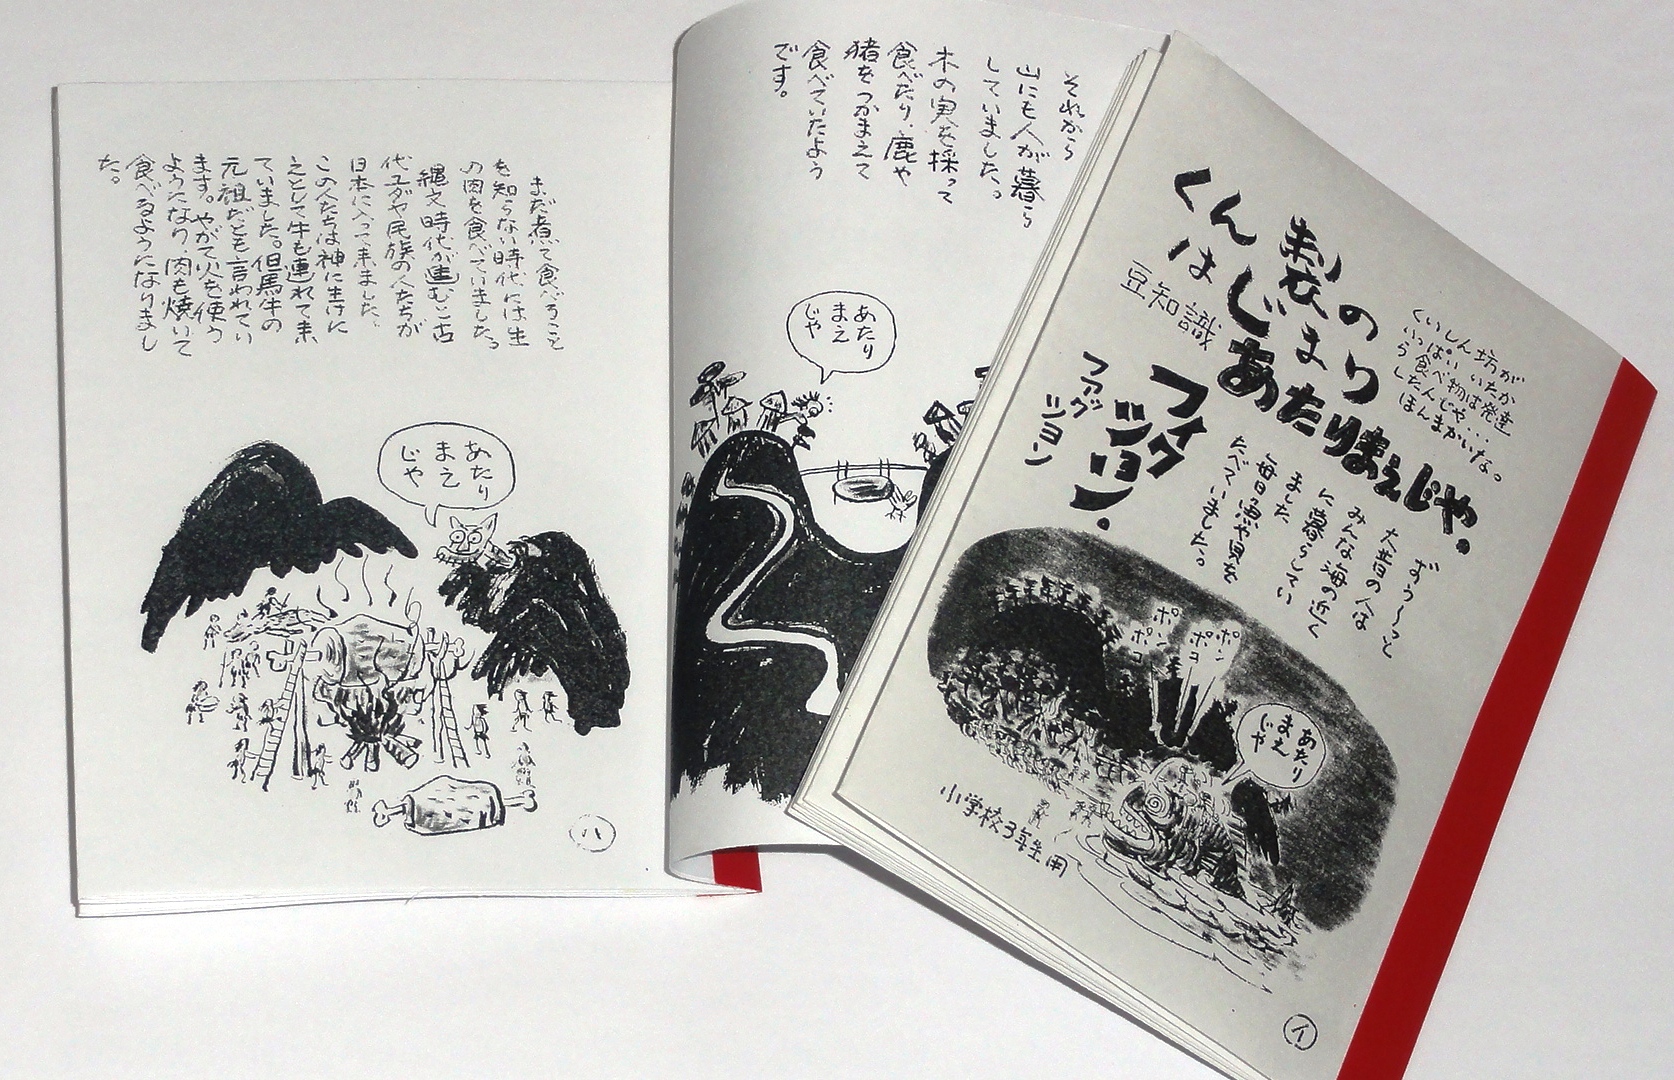 くん製の
はじまり
あたりまえじゃ。
豆知識
フィク
ッション。
ファク
ッション
くいしん坊が
いっぱいいたか
ら食べ物は発達
したんじゃ・・・
ほんまかいな。
ずぅ〜っと
大昔の人は
みんな海の近く
に暮らしてい
ました
毎日魚や貝を
たべていました。
ポン
ポコ
ポン
ポコ
あたり
まえ
じゃ
小学校3年生用
イ
それから
山にも人が暮ら
していました。
木の実を採って
食べたり、鹿や
猪をつかまえて
食べていたよう
です。
あたり
まえ
じゃ
まだ煮て食べること
を知らない時代には生
の肉を食べていました。
縄文時代が進むと古
代ユダヤ民族の人たちが
日本に入って来ました。
この人たちは神に生けに
えとして牛も連れて来
ていました。但馬牛の
元祖だとも言われてい
ます。やがて火を使う
ようになり、肉も焼いて
食べるようになりまし
た。
あたり
まえ
じゃ
ハ